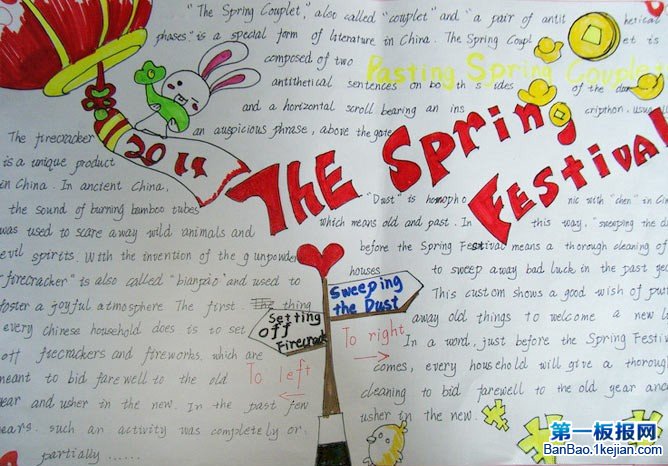 "The Spring Couplet", also called "couplet" and "a pair of antit hetical
phases." is a special form of literature in China. The Spring Coupl et is
composed of two
antithetical sentences on bo th s ides of the
and a horizontal scroll bearing an ins cripthon.
an auspicious phrase, above the gate
Pasting Spring Couplet
2014
The Spring
Festival
The firecracker
is a unique product
in China. In ancient China,
the sound of burning bamboo tubes
was used to scare away wild animals and
evil spirits. With the invention of the g unpowder
"firecracker" is also called "bianpao" and used to
foster a joyful atmosphere The first thing
every chinese household does is to set
off firecrackers and fireworks, which are
meant to bid farewell to the old
year and usher in the new. In the past few
years. such an activity was completely or
partially ......
"Dust" is homopho nic with "chen" in
which means old and past. In this way, "sweeping the
before the Spring Festival means a thorough cleaning of
houses to sweep away bad luck in the past
This custom shows a good wish of
away old things to welcome a new
In a word, just before the Spring
comes, every household will give a
cleaning to bid farewell to the old year and
usher in the new.
Sweeping
the Dust
Setting
off
Firecrack
To right
To left
第一板报网
BanBao.1kejian.com